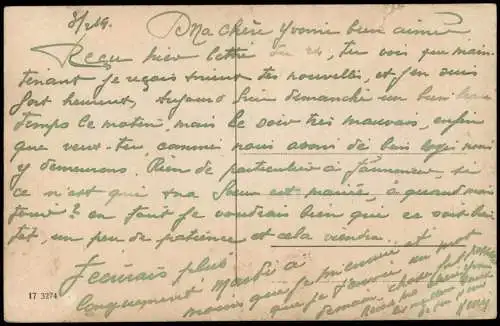 8/2 19. Ma chère Yvonne bien aimée
Reçu hier lettre du 24, tu vois que main-
tenant je reçois mieux tes nouvelles, et j'en suis
fort heureux, Aujourd hui dimanche un bien beau
temps le matin, mais le soir très mauvais, enfin
que veux-tu, comme nous avons de bons logis nous
y demeurons. Rien de particulier à t'annoncer, si
ce n'est que ta sœur est mariée, à quand notre
tour? en tout je voudrais bien que ce soit bien-
tôt, un peu de patience et cela viendra.
J'écrirais plus
longuement mardi à
moins que je m'ennuie et
que je t'envoie un mot
demain
17 3274